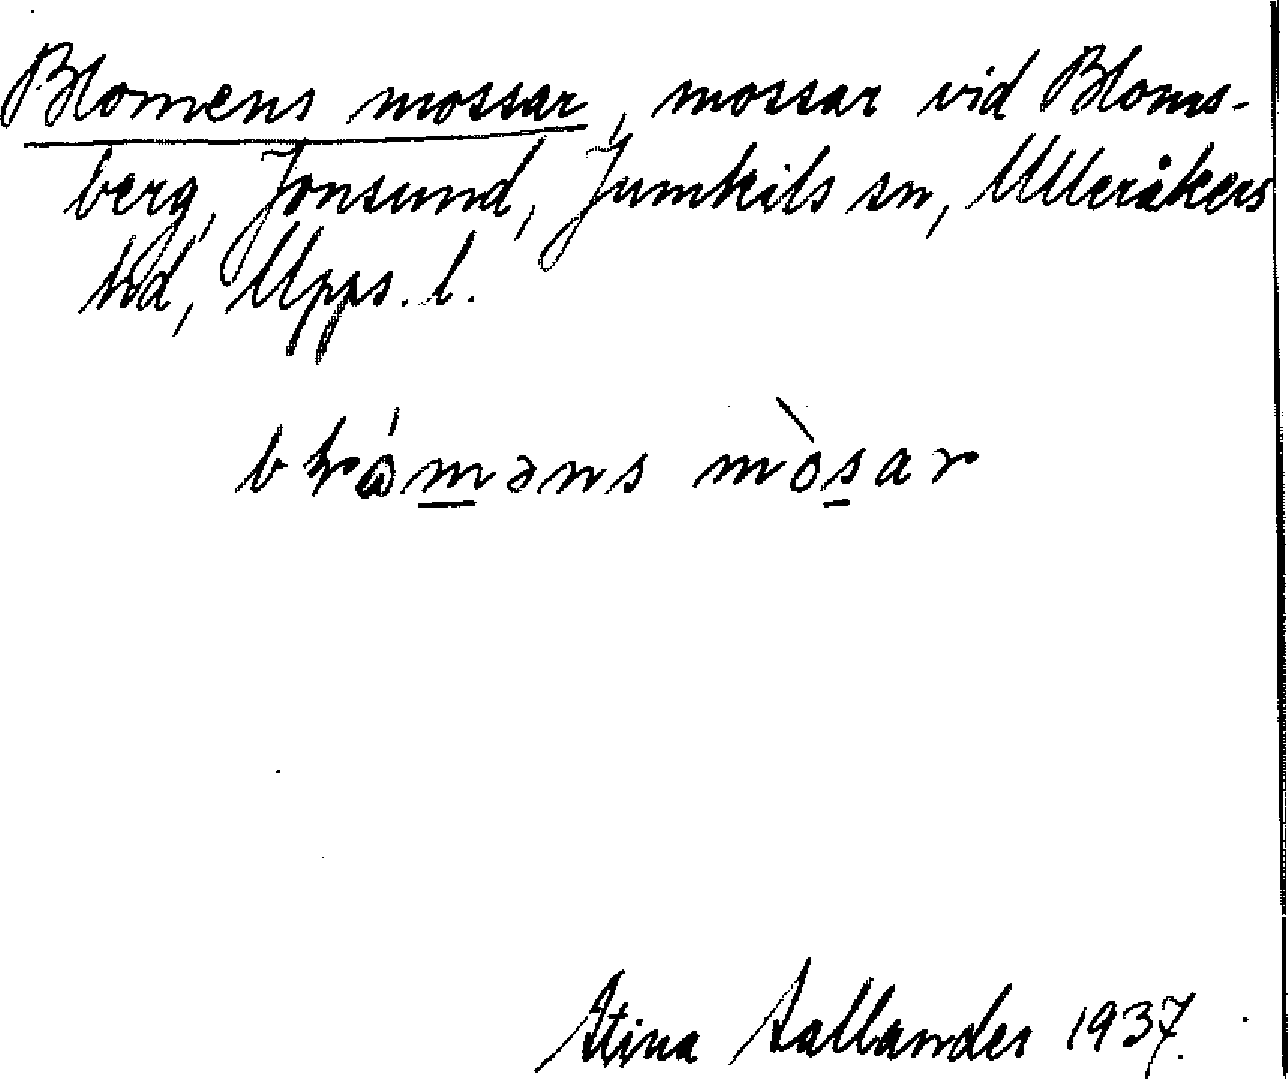 Blomens mossar, mossar vid Bloms-
berg, Jonsund, Jumkils sn, Ulleråkers
hd, Upps. l.
mòsar
Stina Sallander 1937.